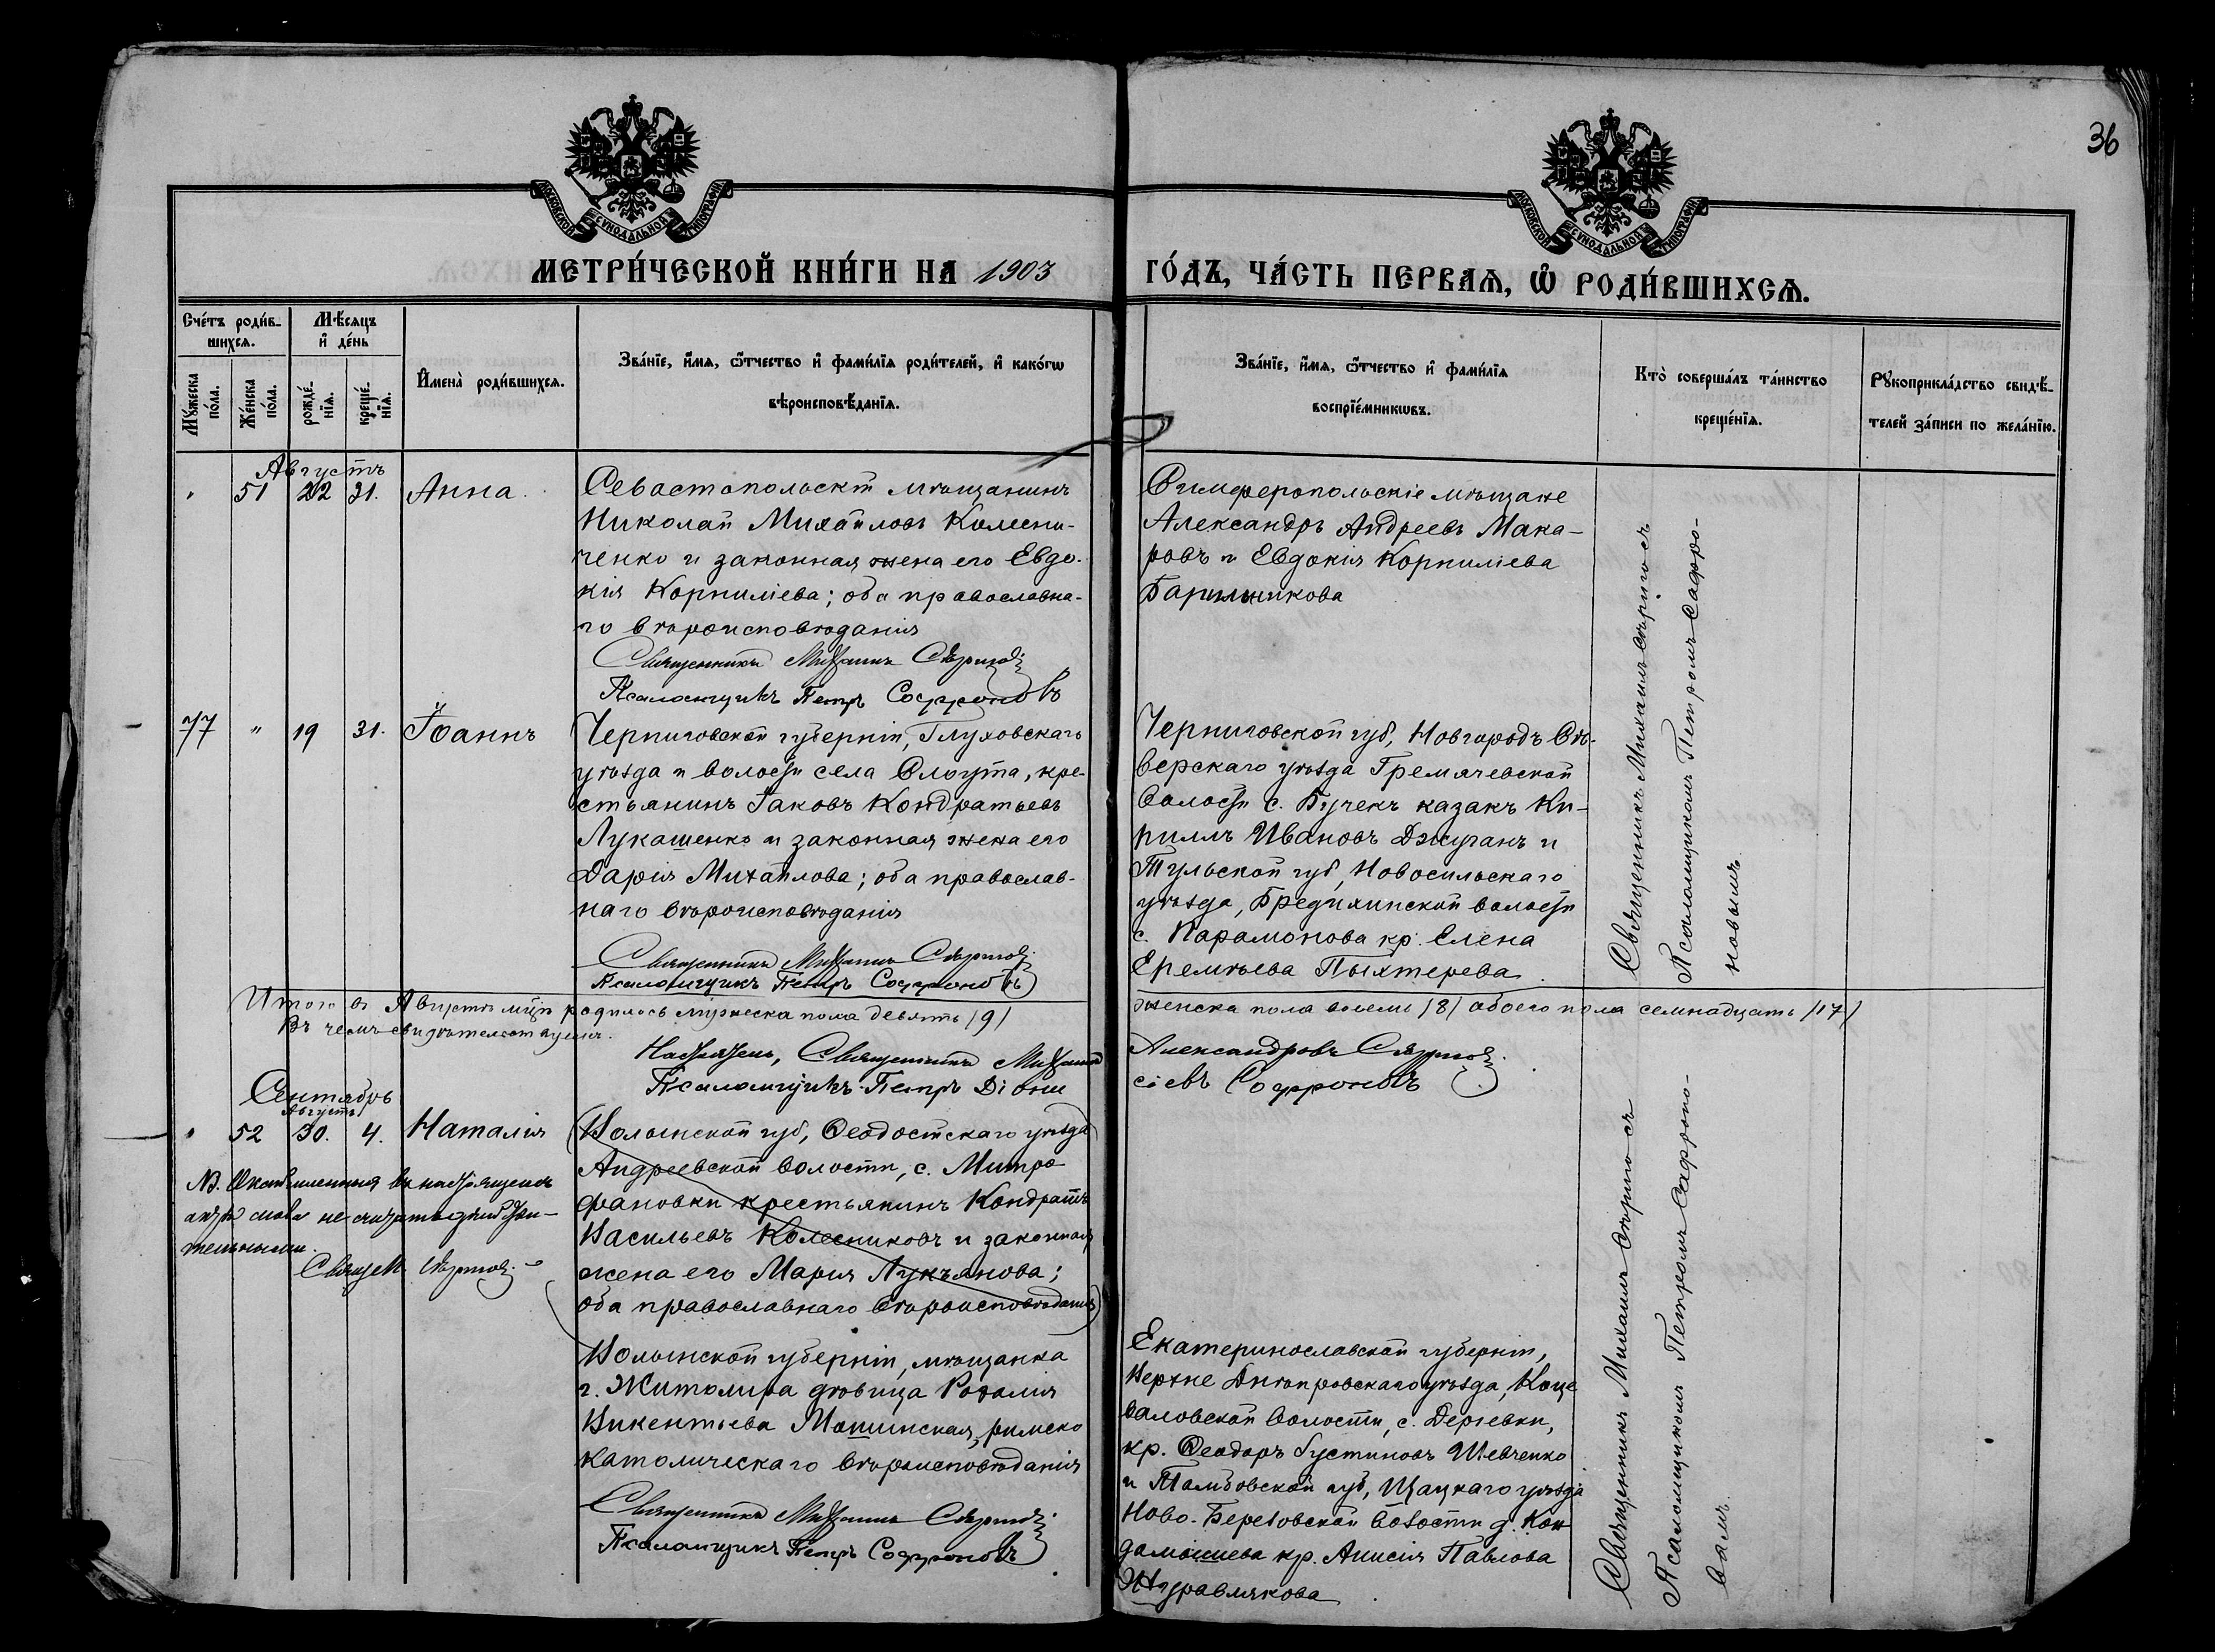 36
МОСКОВСКОЙ СѴНОДАЛЬНОЙ ТИПОГРАФІИ
МОСКОВСКОЙ СѴНОДАЛЬНОЙ ТИПОГРАФІИ
МЕТРИ́ЧЕСКОЙ КНИ́ГИ НА 1903 ГО́ДЪ, ЧА́СТЬ ПЕРВАѦ, Ѽ РОДИ́ВШИХСѦ.
Сче́тъ роди́в-
шихсѧ.
Мꙋ́жеска по́ла.
Же́нска по́ла.
Мѣ́сѧцъ и҆ де́нь
рожде́-нїѧ.
креще́-нїѧ.
И҆мена̀ роди́вшихсѧ.
Зва́нїе, и҆́мѧ, ѻ҆́тчество и҆ фами́лїѧ роди́телей, и҆ како́гѡ
вѣроисповѣ́данїѧ.
Зва́нїе, и҆́мѧ, ѻ҆́тчество и҆ фами́лїѧ
воспрїе́мникѡвъ.
Кто̀ соверша́лъ та́инство
креще́нїѧ.
Рꙋкоприкла́дство свидѣ́-
телей за́писи по жела́нїю.
Августъ
" 51 22 31. Анна.
Севастопольскій мѣщанинъ
Николай Михайловъ Колесни-
ченко и законная жена его Евдо-
кія Корниліева; оба православна-
го вѣроисповѣданія
Священникъ Михаилъ
Псаломщикъ Петръ Софроновъ
Симферопольскіе мѣщане
Александръ Андреевъ Мака-
ровъ и Евдокія Корниліева
Священникъ Михаилъ
Псаломщикомъ Петромъ Софро-
новымъ
77 " 19 31. Іоаннъ
Черниговской губерніи, Глуховскаго
уѣзда и волости села Слоута, кре-
стьянинъ Іаковъ Кондратьевъ
Лукашенко и законная жена его
Дарія Михайлова; оба православ-
наго вѣроисповѣданія
Священникъ Михаилъ
Псаломщикъ Петръ Софроновъ
Черниговской губ, Новгородъ Сѣ-
верскаго уѣзда Гремячевской
волости с. Бучекъ казакъ Ки-
риллъ Ивановъ Джуганъ и
Тульской губ, Новосильскаго
уѣзда, Бредихинской волости
с. Парамонова кр. Елена
Еремѣева Пыхтерева
Итого въ Августѣ м-цѣ родилось мужеска пола девять /9/ женска пола восемь /8/ обоего пола семнадцать /17/
Въ чемъ свидѣтельствуемъ.
Настоятель, Священникъ Михаилъ Александровъ
Псаломщикъ Петръ Діонисіевъ Софроновъ
Сентябрь
Августъ
" 52 30. 4. Наталія
(Волынской губ, Ѳеодосійскаго уѣзда
Андреевской волости, с. Митро-
фановки крестьянинъ Кондратъ
Васильевъ Колесниковъ и законная
жена его Марія Лукьянова;
оба православнаго вѣроисповѣданія)
Волынской губерніи, мѣщанка
г. Житомира дѣвица Розалія
Викентьева римско
католическаго вѣроисповѣданія
Священникъ Михаилъ
Псаломщикъ Петръ Софроновъ
Екатеринославской губерніи,
Верхне Днѣпровскаго уѣзда, Коце
валовской волости, с. Деріевки,
кр. Ѳеодоръ Іустиновъ Шевченко
и Тамбовской губ, Шацкаго уѣзда
Ново-Березовской волости д.
кр. Анисія Павлова
Журавлякова
Священникъ Михаилъ
Псаломщикомъ Петромъ Софроно-
вымъ